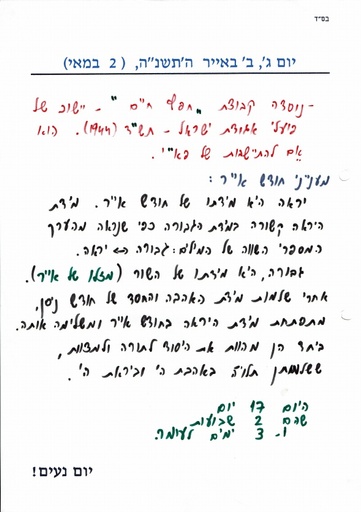 בס״ד
יום ג׳, ב׳ באייר ה׳תשנ״ה, (2 במאי)
- נוסדה קבוצת "חפץ חיים" - יישוב של
פועלי אגודת ישראל - תש"ד (1944). הוא
אם להתישבות של פא"י.
מעניני חודש אייר:
יראה היא מידתו של חודש אייר. מידת
היראה קשורה במידת הגבורה כפי שנראה מהערך
המספרי השווה של המילים: גבורה ⇔ יראה.
גבורה, היא מידתו של השור (מזלו של אייר).
אחרי שלמות מידת האהבה והחסד של חודש ניסן,
מתפתחת מידת היראה בחודש אייר ומשלימה אותה.
ביחד הן מהוות את היסוד לתורה ולמצוות,
ששלמותן תלויה באהבת ה' וביראת ה'.
היום 17 יום
שהם 2 שבועות
ו- 3 ימים לעומר.
יום נעים!